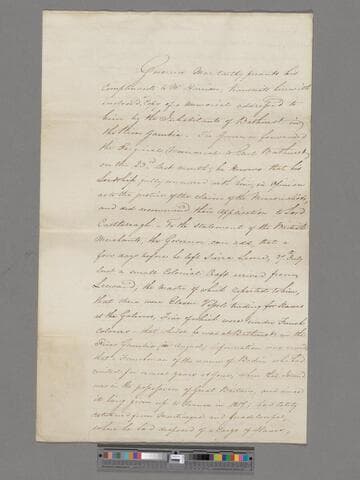 Governor MacCarthy presents his
Compliments to Mr. Harrison, transmits herewith
inclosed Copy of a Memorial addressed to
him by the Inhabitants of Bathurst in
the River Gambia. The Governor forwarded
the Original Memorial to Earl Bathurst
on the 23d. last month; he knows that his
Lordship fully concurred with him in Opinion
as to the justice of the claims of the Memorialists
and did recommend their Application to Lord
Castlereagh. To the statement of the British
Merchants, the Governor can add, that a
few days before he left Sierra Leone, in July
last a small Colonial Craft arrived from
Leeward, the master of which reported to him,
that there were Eleven Vessels trading for Slaves
at the Galinas, five of which were under French
colours – that whilst he was at Bathurst on the
River Gambia his Agents information was
that a Frenchman of the name of Bodin who had
resided for several years at Goree, when that Island
was in the possession of Great Britain, and since
it being given up to France in 1817, had lately
returned from Martinique and Guadeloupe,
where he had disposed of a Cargo of Slaves,